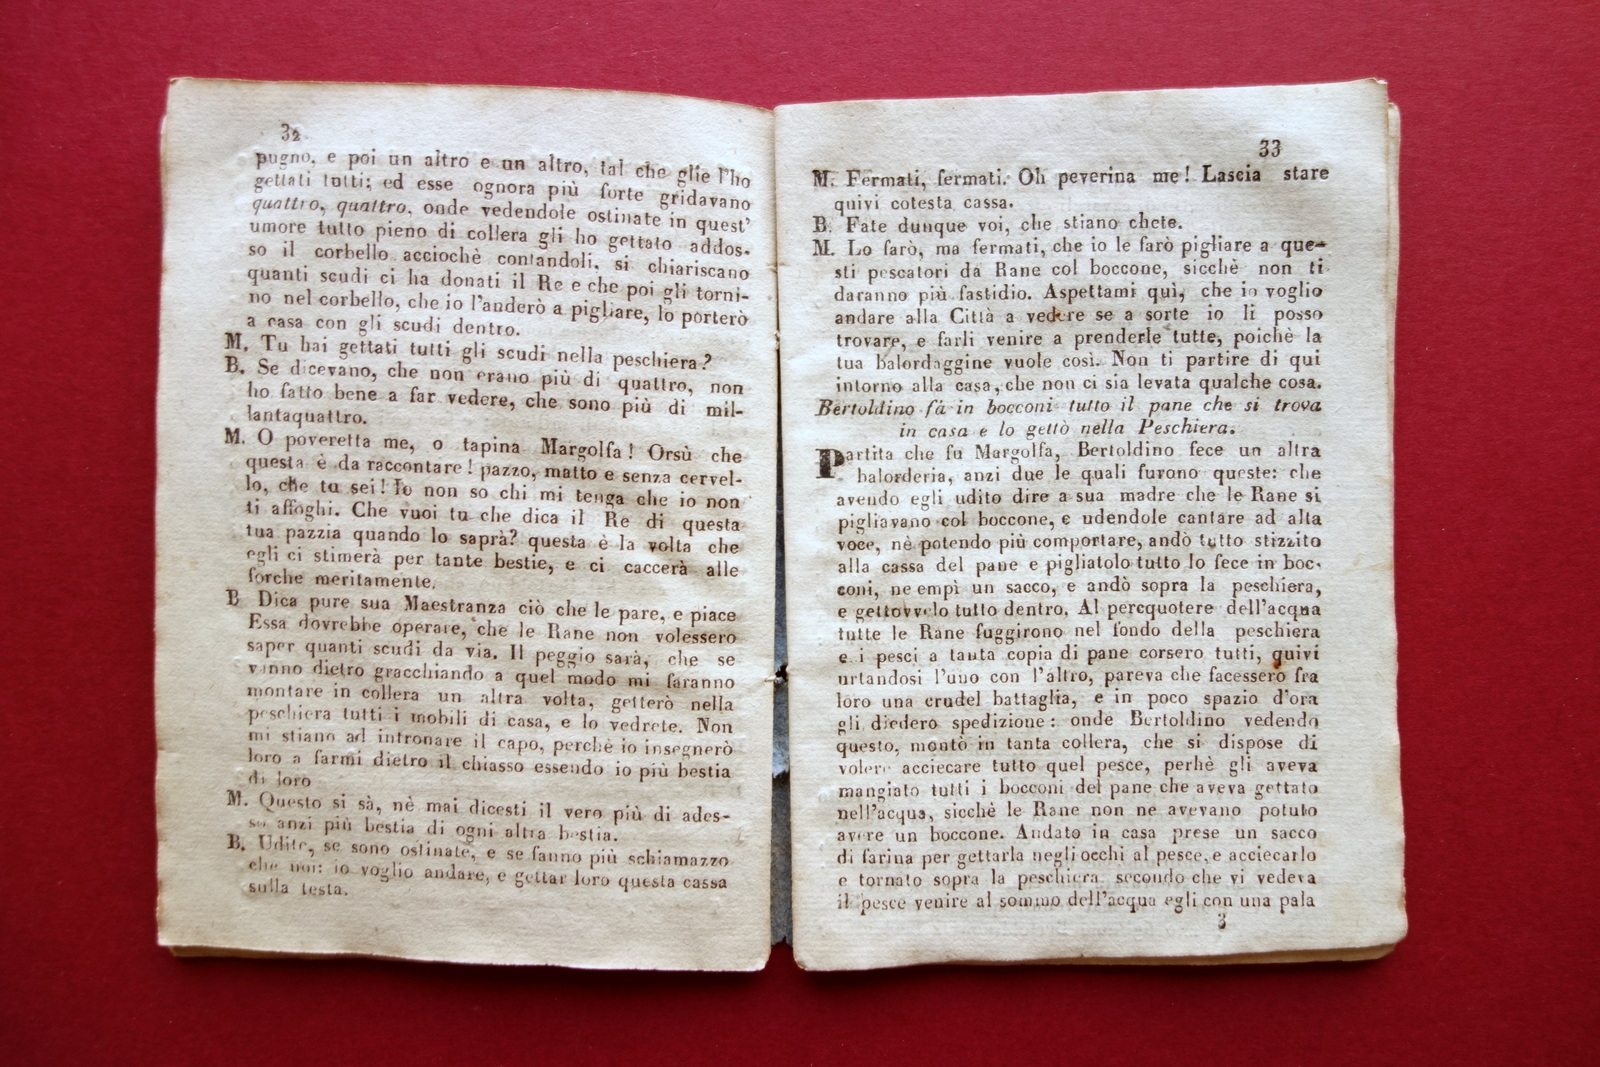 32
pugno, e poi un altro e un altro, tal che glie l'ho
gettati tutti; ed esse ognora più forte gridavano
quattro, quattro, onde vedendole ostinate in quest'
umore tutto pieno di collera gli ho gettato addos-
so il corbello acciochè contandoli, si chiariscano
quanti scudi ci ha donati il Re e che poi gli torni-
no nel corbello, che io l'anderò a pigliare, lo porterò
a casa con gli scudi dentro.
M. Tu hai gettati tutti gli scudi nella peschiera?
B. Se dicevano, che non erano più di quattro, non
ho fatto bene a far vedere, che sono più di mil-
lantaquattro.
M. O poveretta me, o tapina Margolfa! Orsù che
questa è da raccontare! pazzo, matto e senza cervel-
lo, che tu sei! Io non so chi mi tenga che io non
ti affoghi. Che vuoi tu che dica il Re di questa
tua pazzia quando lo saprà? questa è la volta che
egli ci stimerà per tante bestie, e ci caccerà alle
forche meritamente.
B Dica pure sua Maestranza ciò che le pare, e piace
Essa dovrebbe operare, che le Rane non volessero
saper quanti scudi da via. Il peggio sarà, che se
vanno dietro gracchiando a quel modo mi faranno
montare in collera un altra volta, getterò nella
peschiera tutti i mobili di casa, e lo vedrete. Non
mi stiano ad intronare il capo, perchè io insegnerò
loro a farmi dietro il chiasso essendo io più bestia
di loro
M. Questo si sà, nè mai dicesti il vero più di ades-
so anzi più bestia di ogni altra bestia.
B. Udite, se sono ostinate, e se fanno più schiamazzo
che mai: io voglio andare, e gettar loro questa cassa
sulla testa.
33
M. Fermati, fermati. Oh peverina me! Lascia stare
quivi cotesta cassa.
B. Fate dunque voi, che stiano chete.
M. Lo farò, ma fermati, che io le farò pigliare a que-
sti pescatori da Rane col boccone, sicchè non ti
daranno più fastidio. Aspettami quì, che io voglio
andare alla Città a vedere se a sorte io li posso
trovare, e farli venire a prenderle tutte, poichè la
tua balordaggine vuole così. Non ti partire di qui
intorno alla casa, che non ci sia levata qualche cosa.
Bertoldino fà in bocconi tutto il pane che si trova
in casa e lo gettò nella Peschiera.
Partita che fu Margolfa, Bertoldino fece un altra
balorderia, anzi due le quali furono queste: che
avendo egli udito dire a sua madre che le Rane si
pigliavano col boccone, e udendole cantare ad alta
voce, nè potendo più comportare, andò tutto stizzito
alla cassa del pane e pigliatolo tutto lo fece in boc-
coni, ne empì un sacco, e andò sopra la peschiera,
e gettovvelo tutto dentro. Al percquotere dell'acqua
tutte le Rane fuggirono nel fondo della peschiera
e i pesci a tanta copia di pane corsero tutti, quivi
urtandosi l'uno con l'altro, pareva che facessero fra
loro una crudel battaglia, e in poco spazio d'ora
gli diedero spedizione: onde Bertoldino vedendo
questo, montò in tanta collera, che si dispose di
volere acciecare tutto quel pesce, perhè gli aveva
mangiato tutti i bocconi del pane che aveva gettato
nell'acqua, sicchè le Rane non ne avevano potuto
avere un boccone. Andato in casa prese un sacco
di farina per gettarla negli occhi al pesce, e acciecarlo
e tornato sopra la peschiera secondo che vi vedeva
il pesce venire al sommo dell'acqua egli con una pala
3